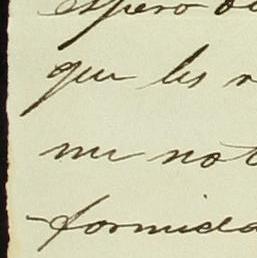 espero
que les
me not
-formida